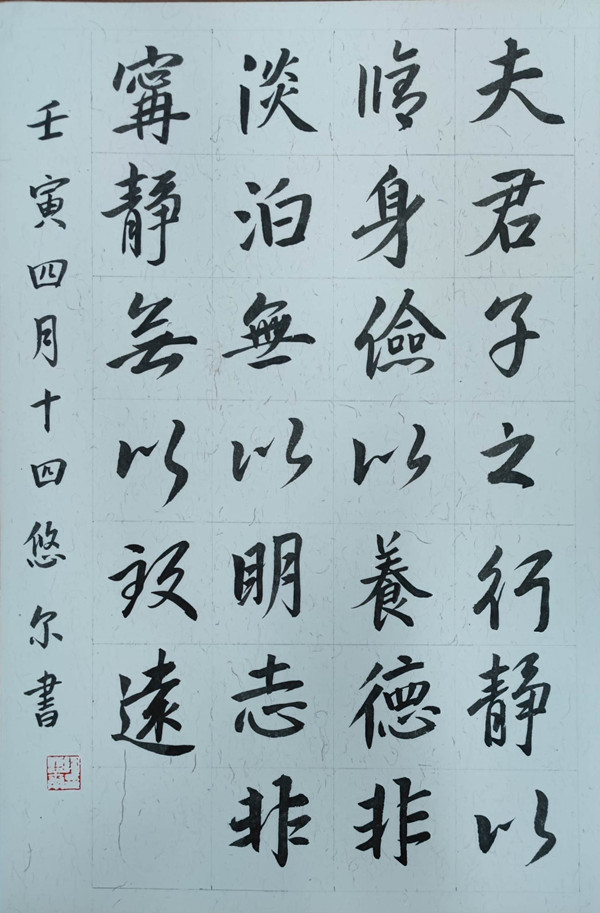 夫君子之行静以
脩身儉以養德非
淡泊無以明志非
寧靜無以致遠
壬寅四月十四悠尔書